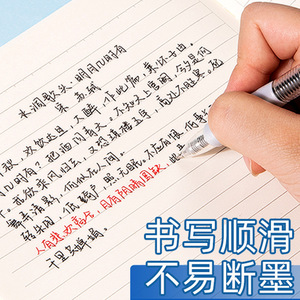 水调歌头·明月几时有
宋 苏轼
秋,欢饮达旦,大醉,作此篇,兼怀子由。
月几时有?把酒问青天。不知天上宫阙,今夕是何
我欲乘风归去,又恐琼楼玉宇,高处不胜寒。起
舞弄清影,何似在人间。
转朱阁,低绮户,照无眠。不应有恨,
人有悲欢离合,月有阴晴圆缺,
千里共婵娟
书写顺滑
不易断墨